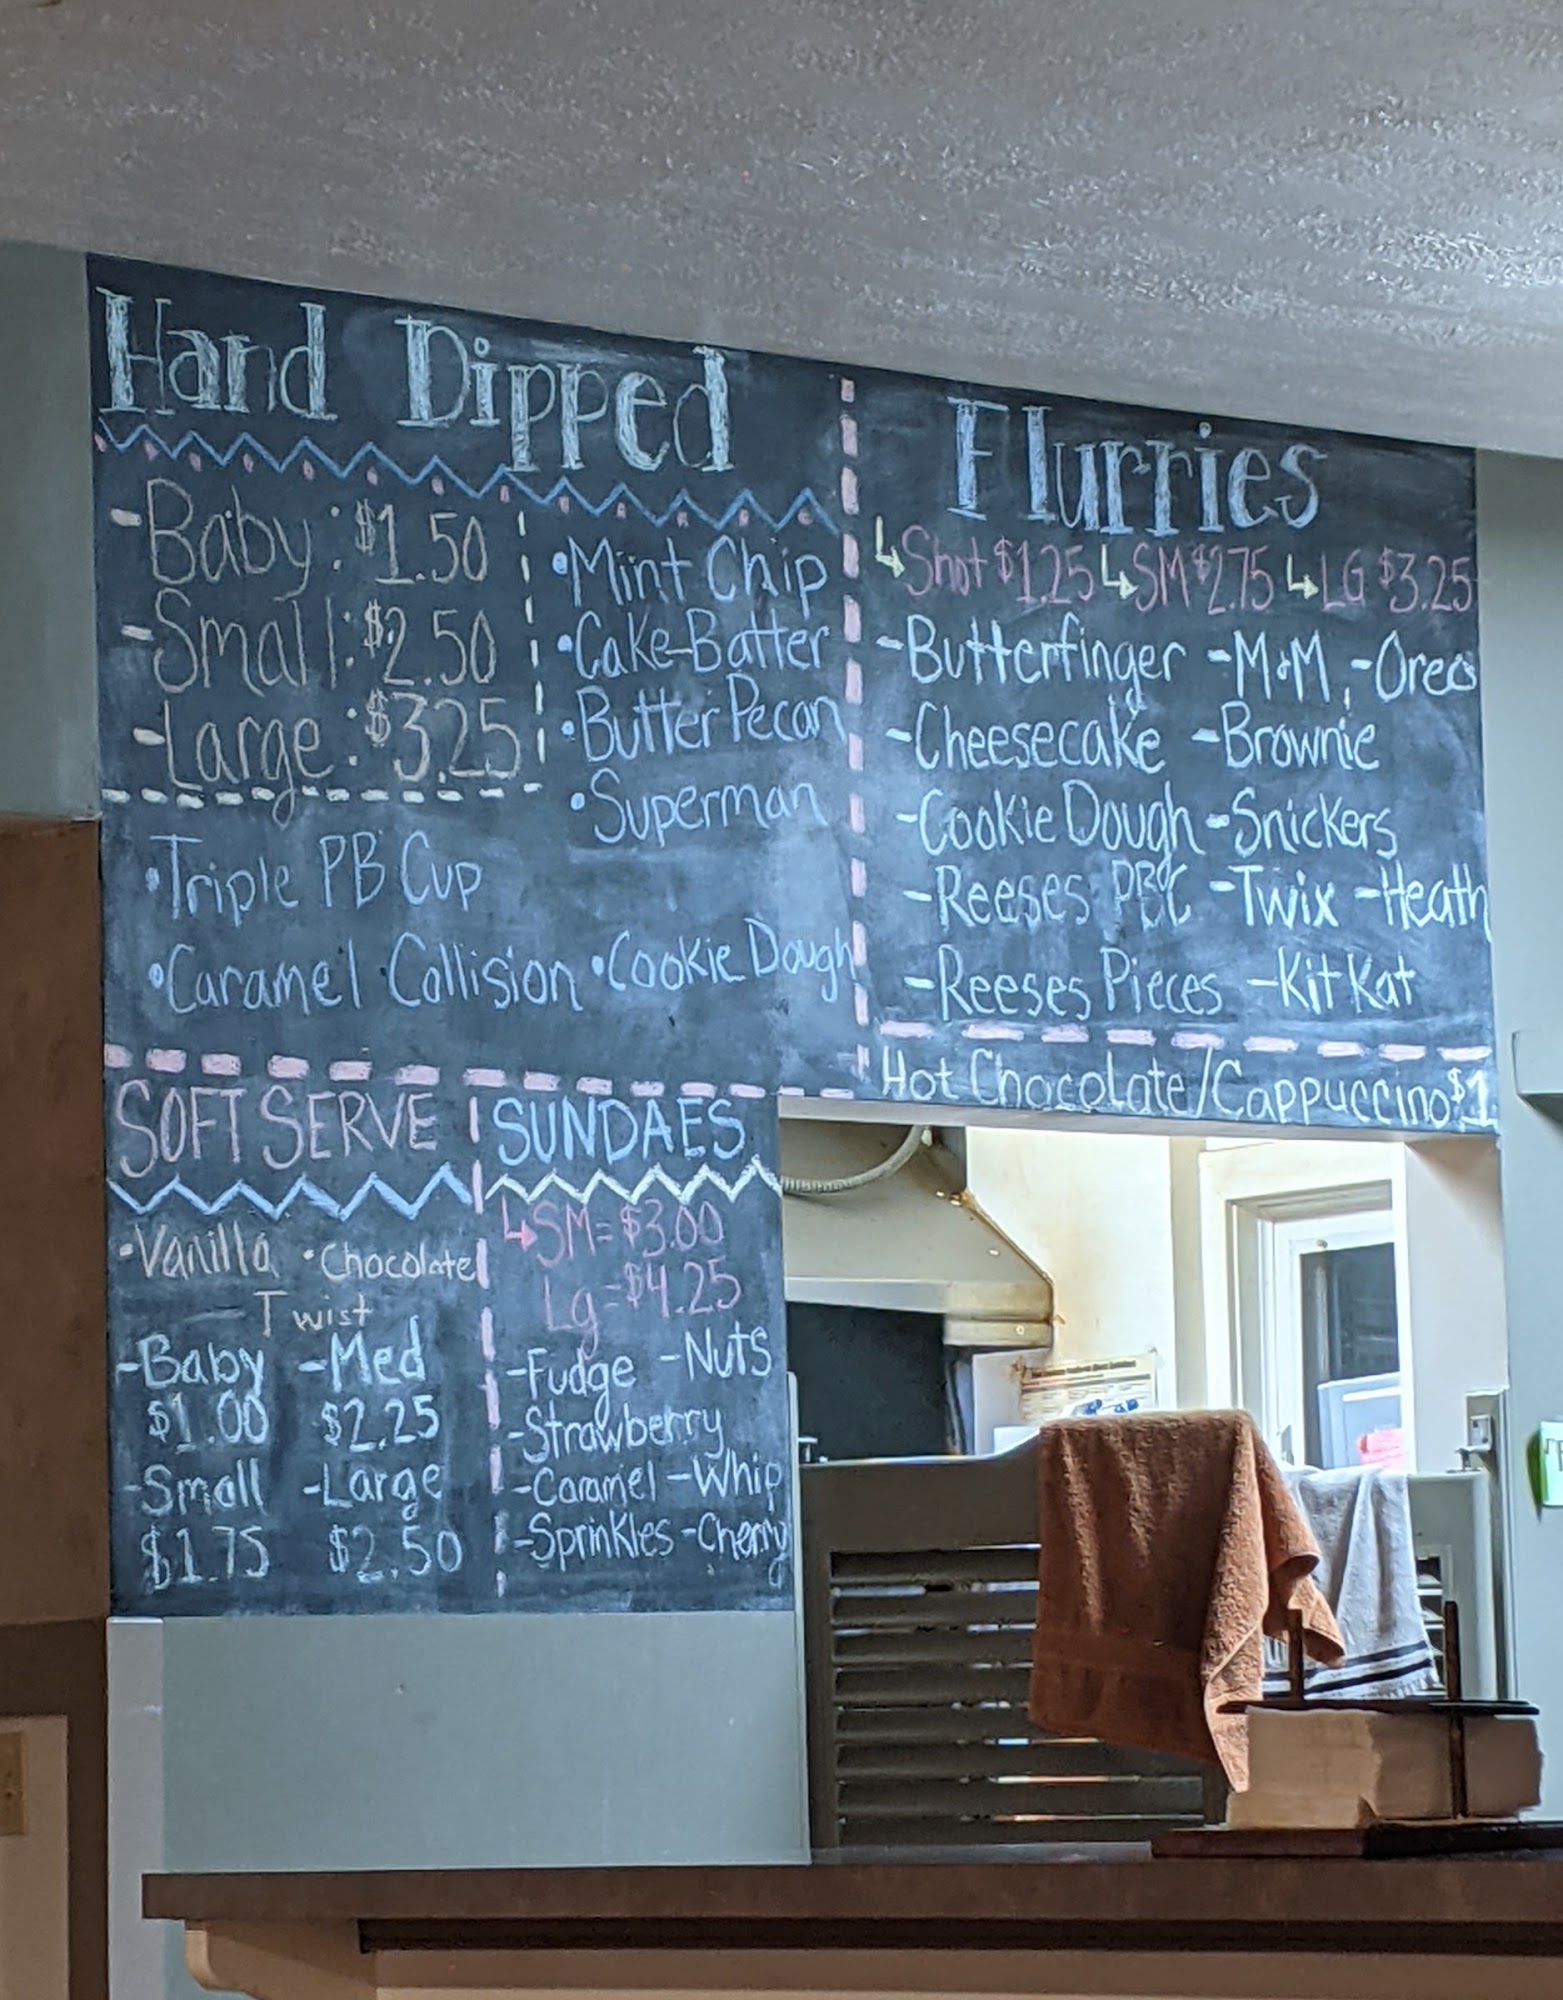 Hand Dipped
-Baby: $1.50
-Small: $2.50
-Large: $3.25
•Mint Chip
•Cake-Batter
•Butter Pecan
•Superman
•Triple PB Cup
•Caramel Collision •Cookie Dough
Flurries
Shot $1.25 SM $2.75 LG $3.25
-Butterfinger -M&M -Oreos
-Cheesecake -Brownie
-Cookie Dough -Snickers
-Reeses PBC -Twix -Heath
-Reeses Pieces -Kit Kat
Hot Chocolate/Cappuccino $1
SOFT SERVE
•Vanilla •Chocolate
Twist
-Baby -Med
$1.00 $2.25
-Small -Large
$1.75 $2.50
SUNDAES
SM=$3.00
Lg=$4.25
-Fudge -Nuts
-Strawberry
-Caramel -Whip
-Sprinkles -Cherry